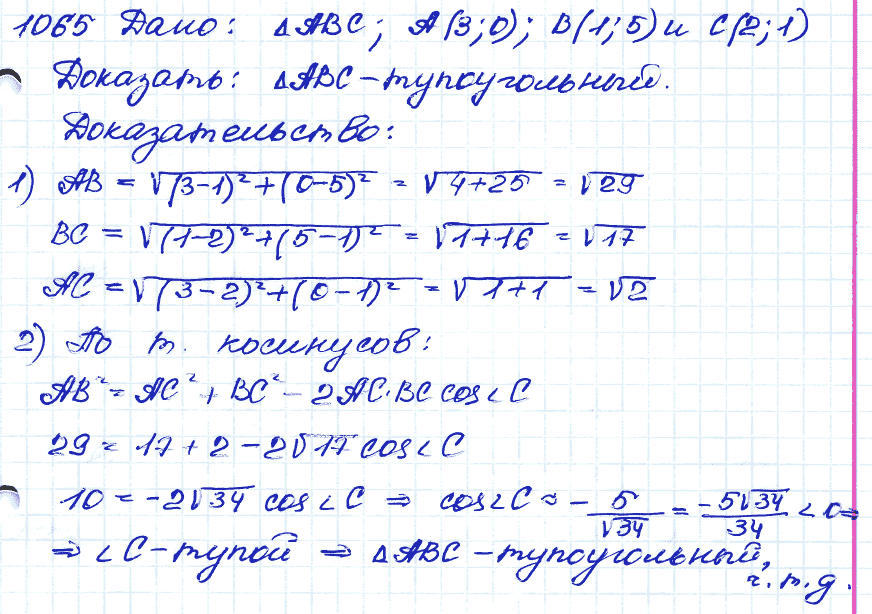 1065 Дано: △ABC; A(3;0); B(1;5) и C(2;1)
Доказать: △ABC – тупоугольный.
Доказательство:
1) AB = √((3-1)²+(0-5)²) = √(4+25) = √29
BC = √((1-2)²+(5-1)²) = √(1+16) = √17
AC = √((3-2)²+(0-1)²) = √(1+1) = √2
2) По т. косинусов:
AB² = AC² + BC² - 2AC·BC cos∠C
29 = 17 + 2 - 2√17 cos∠C
10 = -2√34 cos∠C ⇒ cos∠C ≈ - 5/√34 = -5√34/34 < 0 ⇒
⇒ ∠C – тупой ⇒ △ABC – тупоугольный,
ч.т.д.